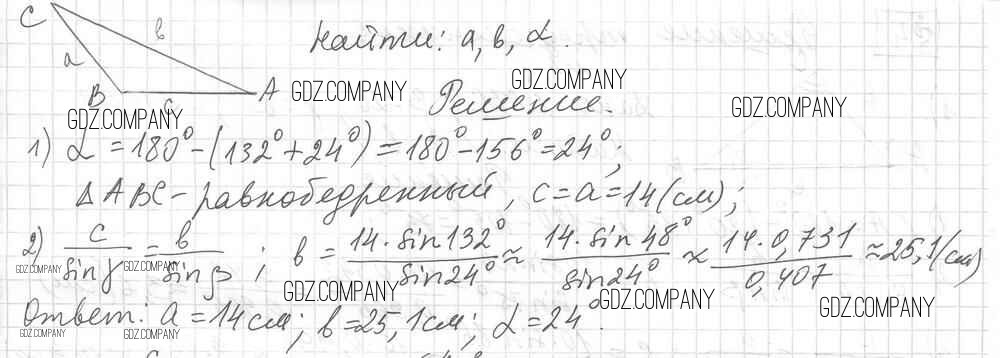 C
b
a
Найти: a, b, α.
B
c
A
GDZ.COMPANY
GDZ.COMPANY
GDZ.COMPANY
GDZ.COMPANY
Решение.
1) α = 180° - (132° + 24°) = 180° - 156° = 24°;
Δ ABC - равнобедренный, c = a = 14 (см);
2) c / sin γ = b / sin β ; b = 14 · sin 132° / sin 24° ≈ 14 · sin 48° / sin 24° ≈ 14 · 0,731 / 0,407 ≈ 25,1 (см)
GDZ.COMPANY
GDZ.COMPANY
GDZ.COMPANY
GDZ.COMPANY
GDZ.COMPANY
Ответ: a = 14 см; b = 25,1 см; α = 24°.
GDZ.COMPANY
GDZ.COMPANY